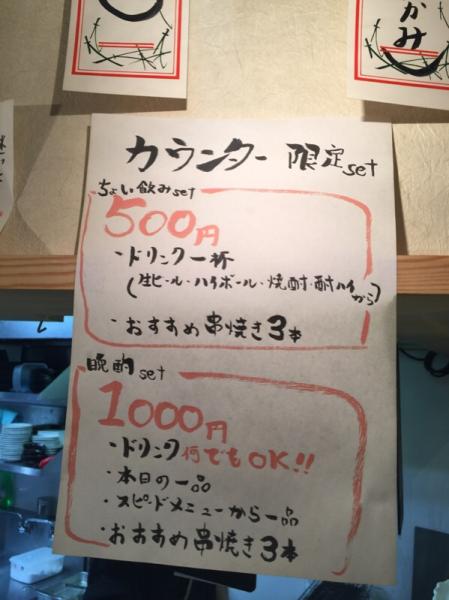 かみ
カウンター 限定set
ちょい飲みset
500円
・ドリンク一杯
(生ビール・ハイボール・焼酎・酎ハイから)
・おすすめ串焼き3本
晩酌set
1000円
・ドリンク何でもOK!!
・本日の一品
・スピードメニューから一品
・おすすめ串焼き3本